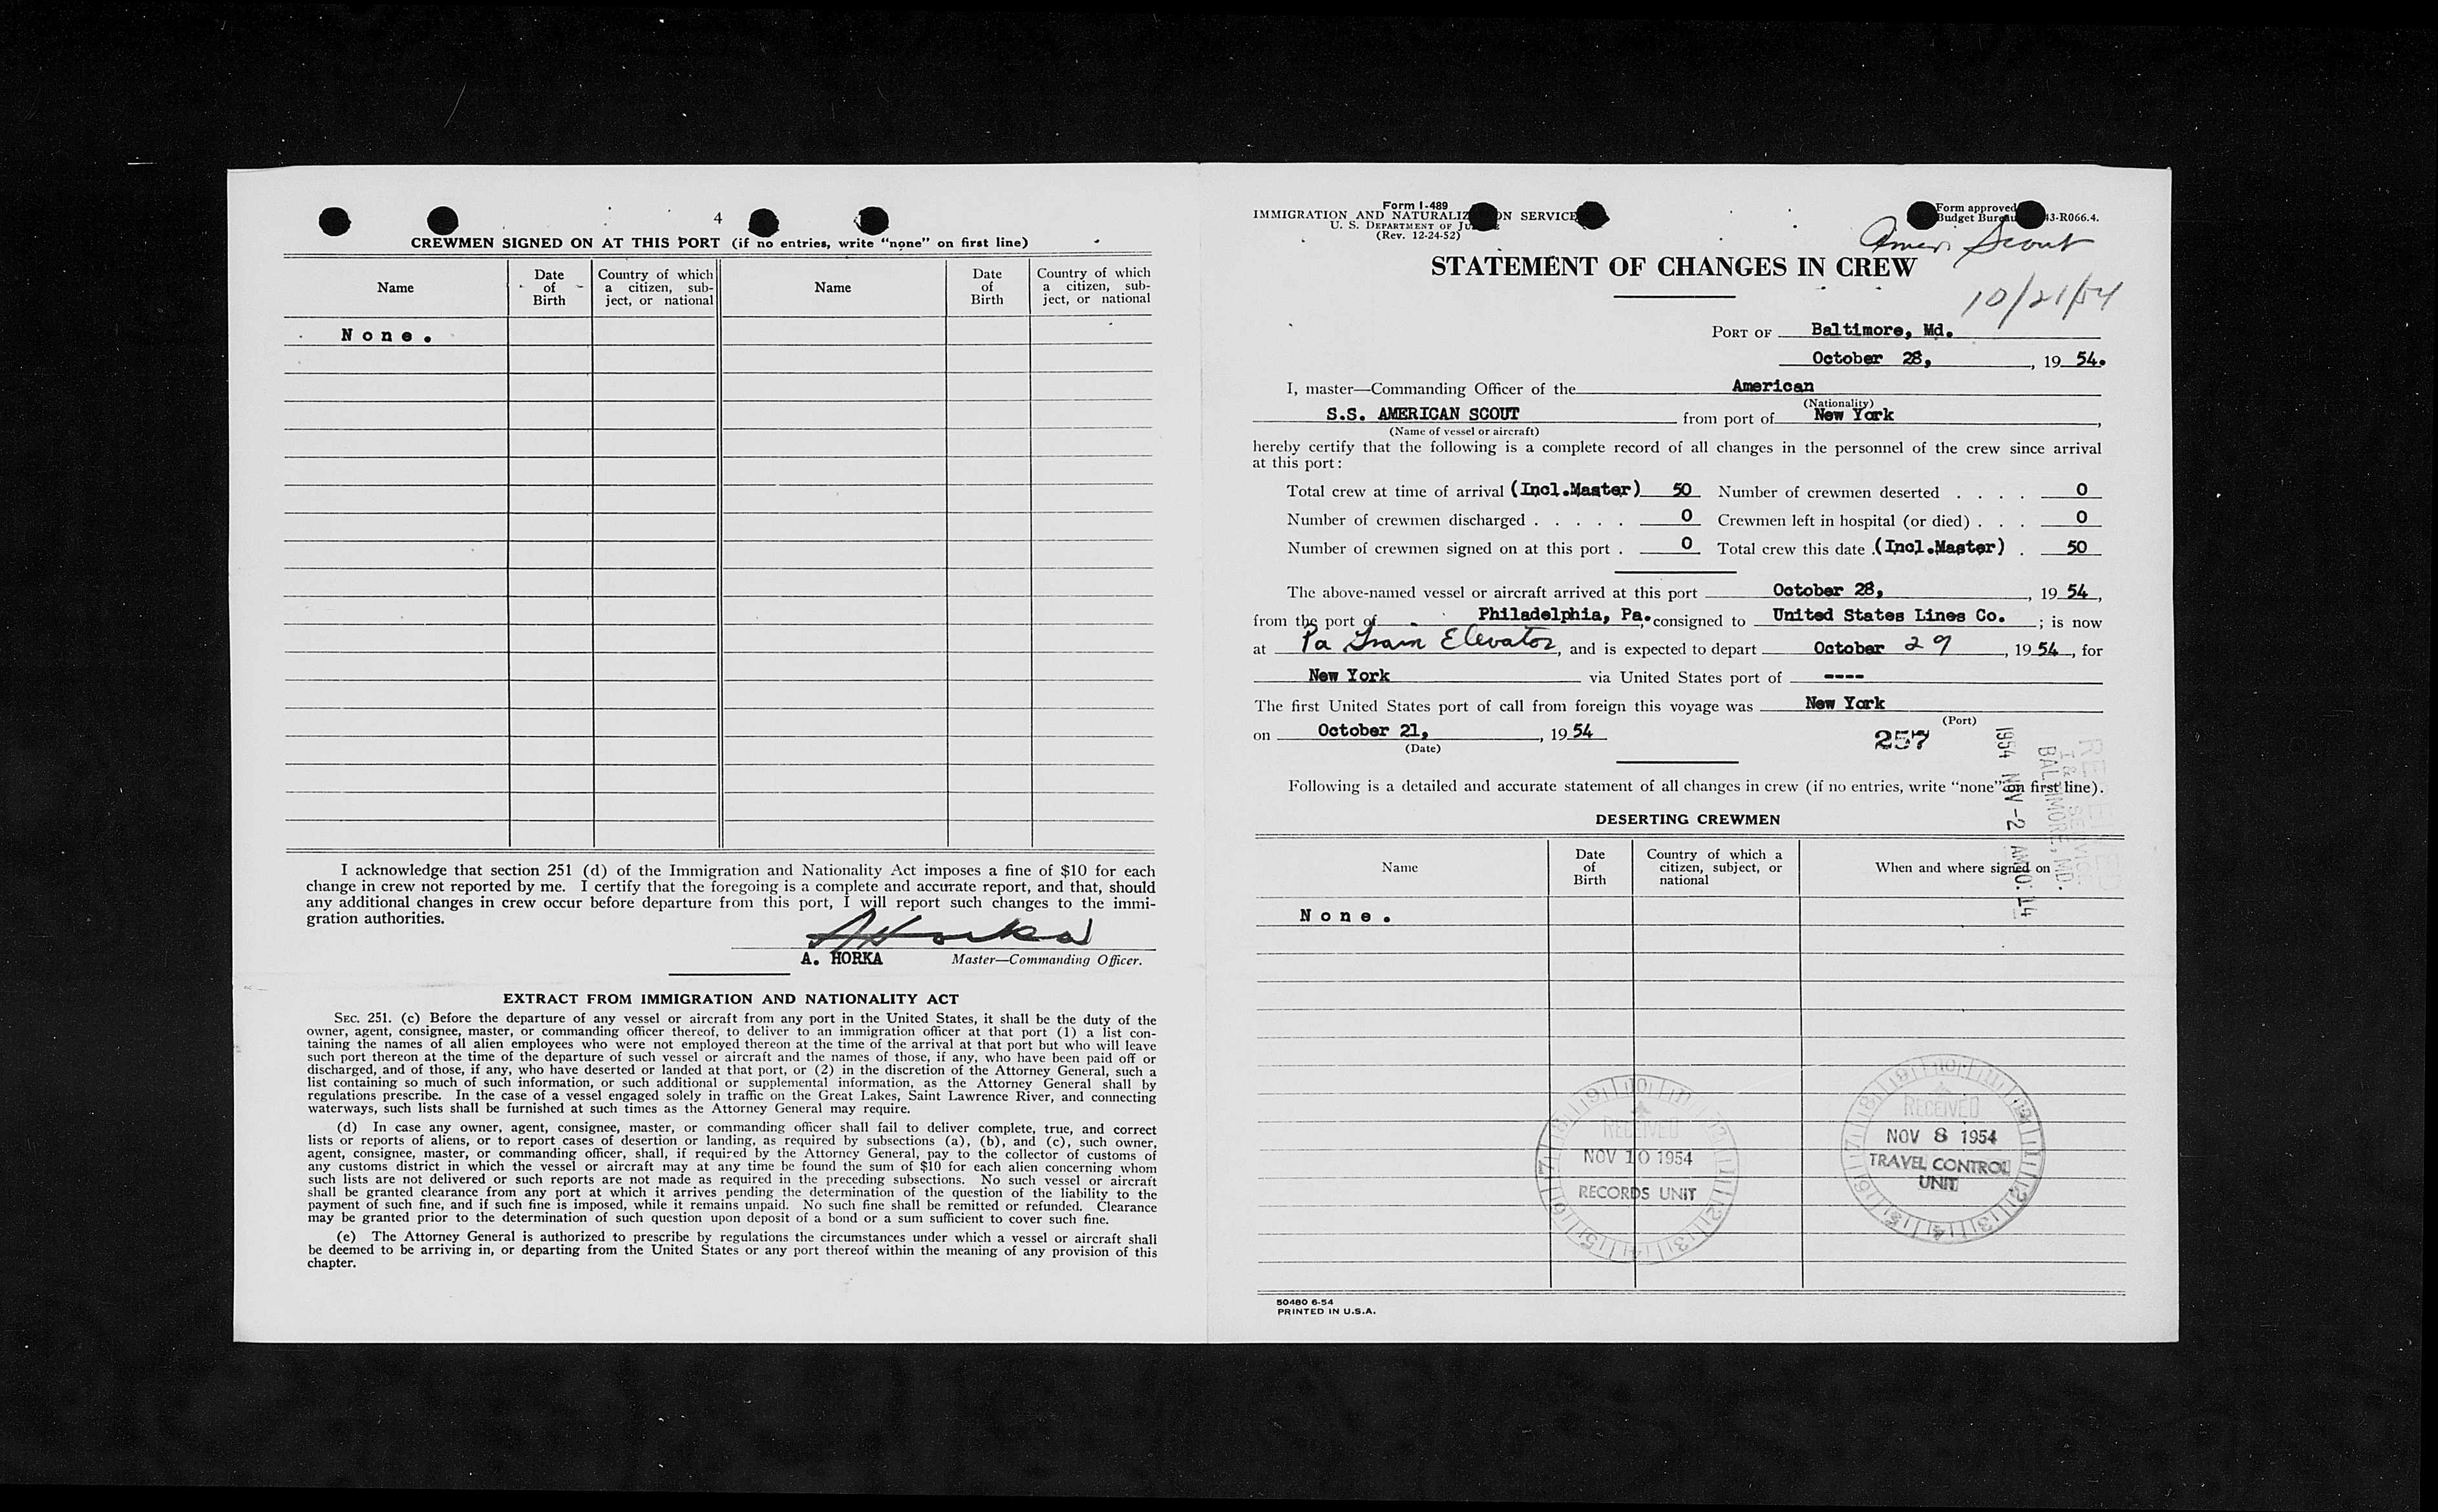 4
CREWMEN SIGNED ON AT THIS PORT (if no entries, write "none" on first line)
Name
Date of Birth
Country of which a citizen, sub-ject, or national
Name
Date of Birth
Country of which a citizen, sub-ject, or national
None.
I acknowledge that section 251 (d) of the Immigration and Nationality Act imposes a fine of $10 for each
change in crew not reported by me. I certify that the foregoing is a complete and accurate report, and that, should
any additional changes in crew occur before departure from this port, I will report such changes to the immi-
gration authorities.
A Horka
A. HORKA Master—Commanding Officer.
EXTRACT FROM IMMIGRATION AND NATIONALITY ACT
SEC. 251. (c) Before the departure of any vessel or aircraft from any port in the United States, it shall be the duty of the
owner, agent, consignee, master, or commanding officer thereof, to deliver to an immigration officer at that port (1) a list con-
taining the names of all alien employees who were not employed thereon at the time of the arrival at that port but who will leave
such port thereon at the time of the departure of such vessel or aircraft and the names of those, if any, who have been paid off or
discharged, and of those, if any, who have deserted or landed at that port, or (2) in the discretion of the Attorney General, such a
list containing so much of such information, or such additional or supplemental information, as the Attorney General shall by
regulations prescribe. In the case of a vessel engaged solely in traffic on the Great Lakes, Saint Lawrence River, and connecting
waterways, such lists shall be furnished at such times as the Attorney General may require.
(d) In case any owner, agent, consignee, master, or commanding officer shall fail to deliver complete, true, and correct
lists or reports of aliens, or to report cases of desertion or landing, as required by subsections (a), (b), and (c), such owner,
agent, consignee, master, or commanding officer, shall, if required by the Attorney General, pay to the collector of customs of
any customs district in which the vessel or aircraft may at any time be found the sum of $10 for each alien concerning whom
such lists are not delivered or such reports are not made as required in the preceding subsections. No such vessel or aircraft
shall be granted clearance from any port at which it arrives pending the determination of the question of the liability to the
payment of such fine, and if such fine is imposed, while it remains unpaid. No such fine shall be remitted or refunded. Clearance
may be granted prior to the determination of such question upon deposit of a bond or a sum sufficient to cover such fine.
(e) The Attorney General is authorized to prescribe by regulations the circumstances under which a vessel or aircraft shall
be deemed to be arriving in, or departing from the United States or any port thereof within the meaning of any provision of this
chapter.
Form I-489
IMMIGRATION AND NATURALIZ ON SERVICE
U. S. DEPARTMENT OF
(Rev. 12-24-52)
Form approved
Budget Bureau 43-R066.4.
Amer. Scout
STATEMENT OF CHANGES IN CREW
10/21/54
PORT OF Baltimore, Md.
October 28, , 19 54.
I, master—Commanding Officer of the American
(Nationality)
S.S. AMERICAN SCOUT from port of New York ,
(Name of vessel or aircraft)
hereby certify that the following is a complete record of all changes in the personnel of the crew since arrival
at this port:
Total crew at time of arrival (Incl.Master) 50 Number of crewmen deserted . . . . 0
Number of crewmen discharged . . . . . 0 Crewmen left in hospital (or died) . . . 0
Number of crewmen signed on at this port . 0 Total crew this date .(Incl.Master) . 50
The above-named vessel or aircraft arrived at this port October 28, , 19 54 ,
from the port of Philadelphia, Pa. consigned to United States Lines Co. ; is now
at Pa Grain Elevator, and is expected to depart October 29 , 19 54 , for
New York via United States port of ----
The first United States port of call from foreign this voyage was New York
(Port)
on October 21, , 19 54
(Date)
257
RECEIVED
I & N SERVICE
BALTIMORE, MD.
1954 NOV -2 AM 10: 14
Following is a detailed and accurate statement of all changes in crew (if no entries, write "none" on first line).
DESERTING CREWMEN
Name
Date of Birth
Country of which a citizen, subject, or national
When and where signed on
None.
RECEIVED
NOV 10 1954
RECORDS UNIT
RECEIVED
NOV 8 1954
TRAVEL CONTROL
UNIT
50480 6-54
PRINTED IN U.S.A.